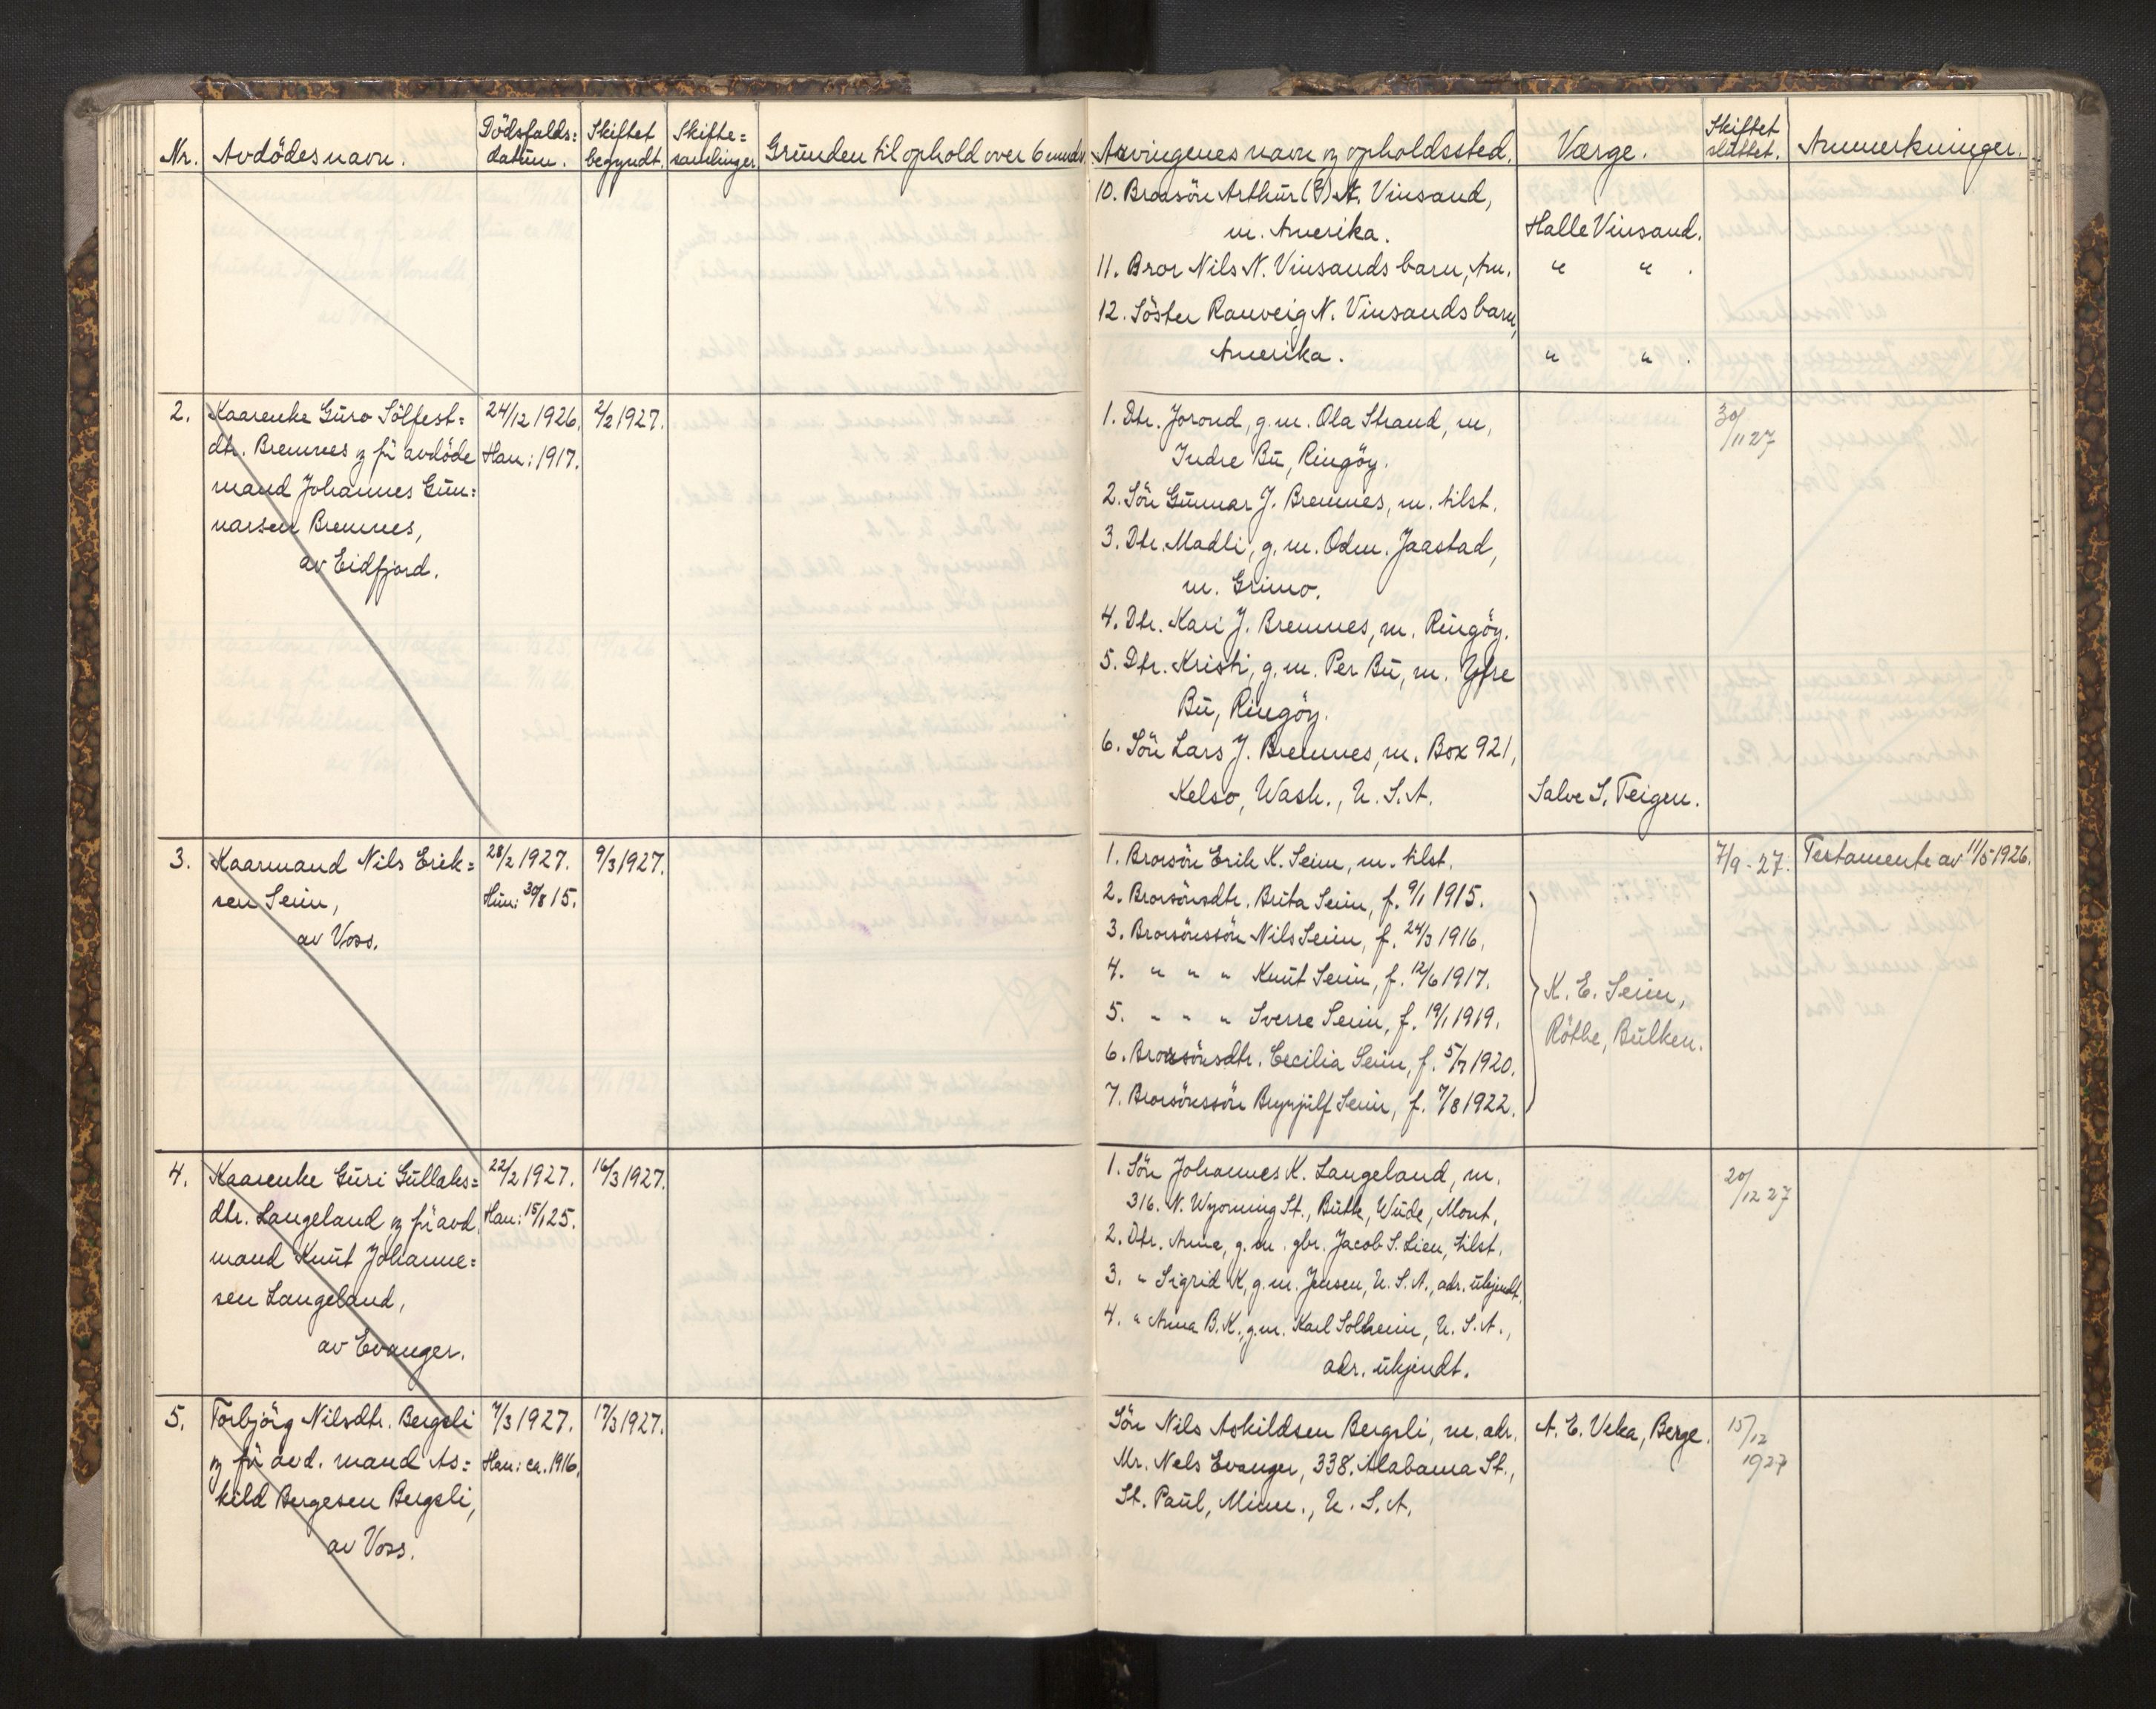 Nr. Avdödes navn. Dödsfalds= datum. Skiftet begyndt. Skifte= samlinger. Grunden til ophold over 6 mndr. Arvingenes navn og opholdssted. Værge. Skiftet sluttet. Anmerkninger.
10. Brorsön Arthur (?) A. Vinsand,
m. Amerika. Halle Vinsand.
11. Bror Nils N. Vinsands barn, Am. " " .
12. Söster Ranveig N. Vinsands barn,
Amerika. " " .
2. Kaarenke Guro Sölfest= 24/12 1926. 2/2 1927.
dtr. Bremnes og før avdöde Han: 1917.
mand Johannes Gun=
narsen Bremnes,
av Eidfjord.
1. Dtr. Jorond, g.m. Ola Strand, m, 30/11 27
Indre Bu, Ringöy.
2. Sön Gunnar J. Bremnes, m. tilst.
3. Dtr. Madli, g.m. Odm. Jaastad,
m. Grimo.
4. Dtr. Kari J. Bremnes, m. Ringöy.
5. Dtr. Kristi, g.m. Per Bu, m. Ytre
Bu, Ringöy.
6. Sön Lars J. Bremnes, m. Box 921,
Kelso, Wash., U.S.A. Salve S. Teigen.
3. Kaarmand Nils Erik= 28/2 1927. 9/3 1927.
sen Seim, Hun: 30/8 15.
av Voss.
1. Brorsön Erik K. Seim, m. tilst. 7/9-27. Testamente av 11/5 1926.
2. Brorsönsdtr. Brita Seim, f. 9/1 1915.
3. Brorsönssön Nils Seim, f. 24/3 1916,
4. " " " Knut Seim, f. 12/6 1917.
5. " " " Sverre Seim, f. 19/1 1919.
6. Brorsönsdtr. Cecilia Seim, f. 5/7 1920.
7. Brorsönssön Brynjulf Seim, f. 7/8 1922.
K. E. Seim,
Röthe, Bulken.
4. Kaarenke Guri Gullaks= 22/2 1927. 16/3 1927.
dtr. Langeland og før avd. Han: 15/1 25.
mand Knut Johanne=
sen Langeland,
av Evanger.
1. Sön Johannes K. Langeland, m. 20/12 27
316. N. Wyoming St., Butte, Wude, Mont.
2. Dtr. Anna, g.m. gbr. Jacob S. Lien, tilst.
3. " Sigrid K, g.m. Jensen, U.S.A., adr. ukjendt.
4. " Anna B.K., g.m. Karl Solheim, U.S.A.,
adr. ukjendt.
5. Torbjörg Nilsdtr. Bergsli 7/3 1927. 17/3 1927.
og før avd. mand As= Han: ca. 1916.
kild Bergesen Bergsli,
av Voss.
Sön Nils Askildsen Bergsli, m. adr. A. E. Veka, Berge. 15/12
Mr. Nels Evanger, 338. Alabama St., 1927
St. Paul, Minn., U.S.A.